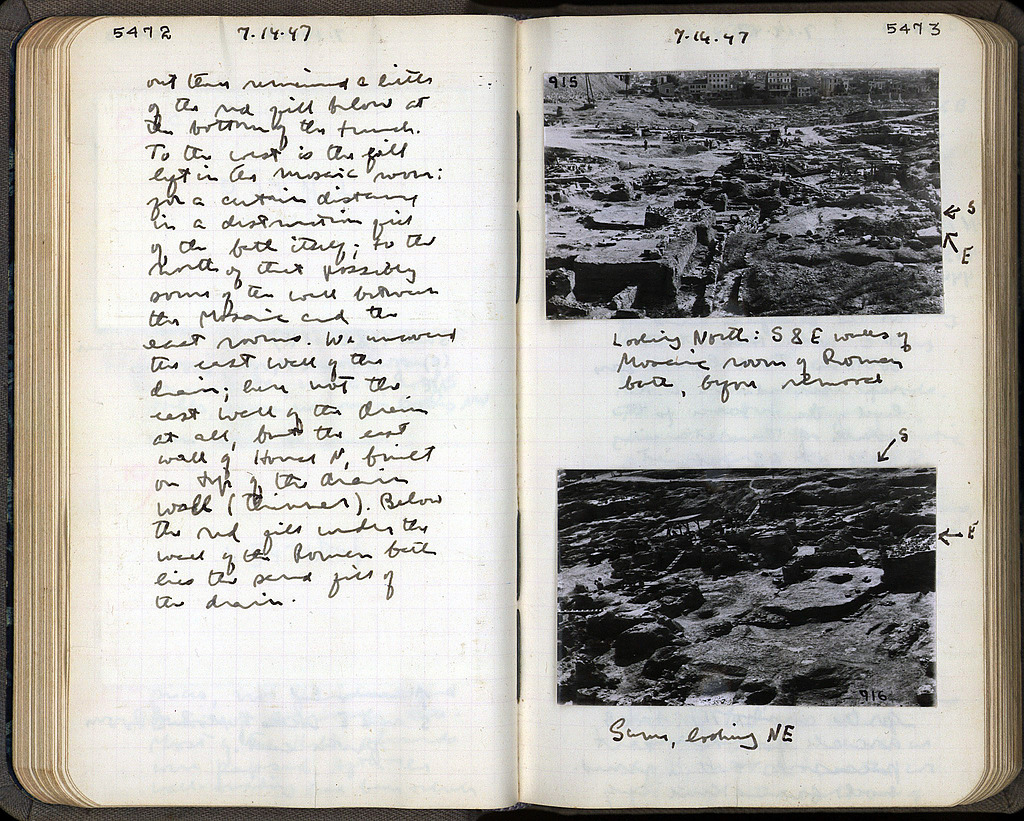 5472 7-14-47
out there remained a little
of the red fill below at
the bottom of the trench.
To the west is the fill
left in the mosaic room:
for a certain distance
is a destruction fill
of the bath itself; to the
north of that possibly
some of the wall between
the Mosaic and the
east rooms. We uncovered
the east wall of the
drain; here not the
east wall of the drain
at all, but the east
wall of House N, built
on top of the drain
wall (thinner). Below
the red fill under the
wall of the Roman bath
lies the sand fill of
the drain.
7-14-47 5473
915
S
E
Looking North: S & E walls of
Mosaic room of Roman
bath, before removal
S
E
916
Same, looking NE